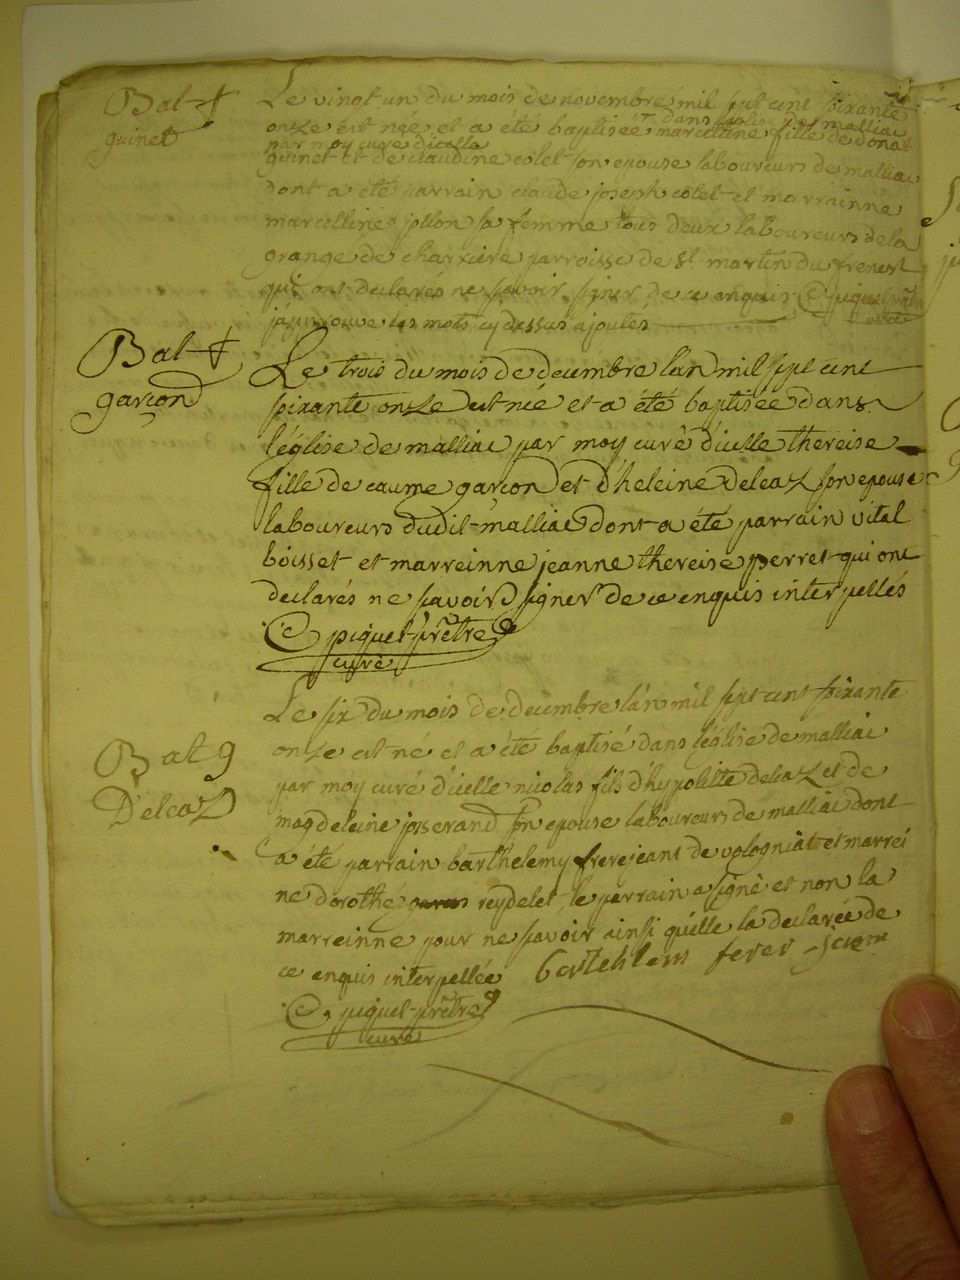 Bat +
guinet
Le vingt un du mois de novembre mil sept cent soixante
onze est née et a été baptisée dans l'eglise de malliac marcelline fille de donat
par moy curé d'icelle
guinet et de claudine colet son epouse laboureurs de malliac
dont a été parrain claude joseph colet et marrainne
marcelline jollon sa femme tous deux laboureurs de la
grange de charriere parroisse de st martin du frenest
qui ont declarés ne savoir signer de ce enquis C piquet prêtre
j'approuve les mots cy dessus ajoutés curé
Bat +
garçon
Le trois du mois de decembre l'an mil sept cent
soixante onze est née et a été baptisée dans
l'église de malliac par moy curé d'icelle thereise
fille de caume garçon et d'heleine deleaz son epouse
laboureurs dudit malliac dont a été parrain vital
boisset et marreinne jeanne thereise perret qui ont
declarés ne savoir signer de ce enquis interpellés
C piquet prêtre
curé
Bat 9
Deleaz
Le six du mois de decembre l'an mil sept cent soixante
onze est né et a été baptisé dans l'église de malliac
par moy curé d'icelle nicolas fils d'hypolitte deleaz et de
magdeleine josserand son epouse laboureurs de malliac dont
a été parrain barthelemy frerejeant de vologniat et marrei
ne dorothé reydelet, le parrain a signé et non la
marreinne pour ne savoir ainsi qu'elle la declarée de
ce enquis interpellée bartehlem ferer
C, piquet prêtre
curé